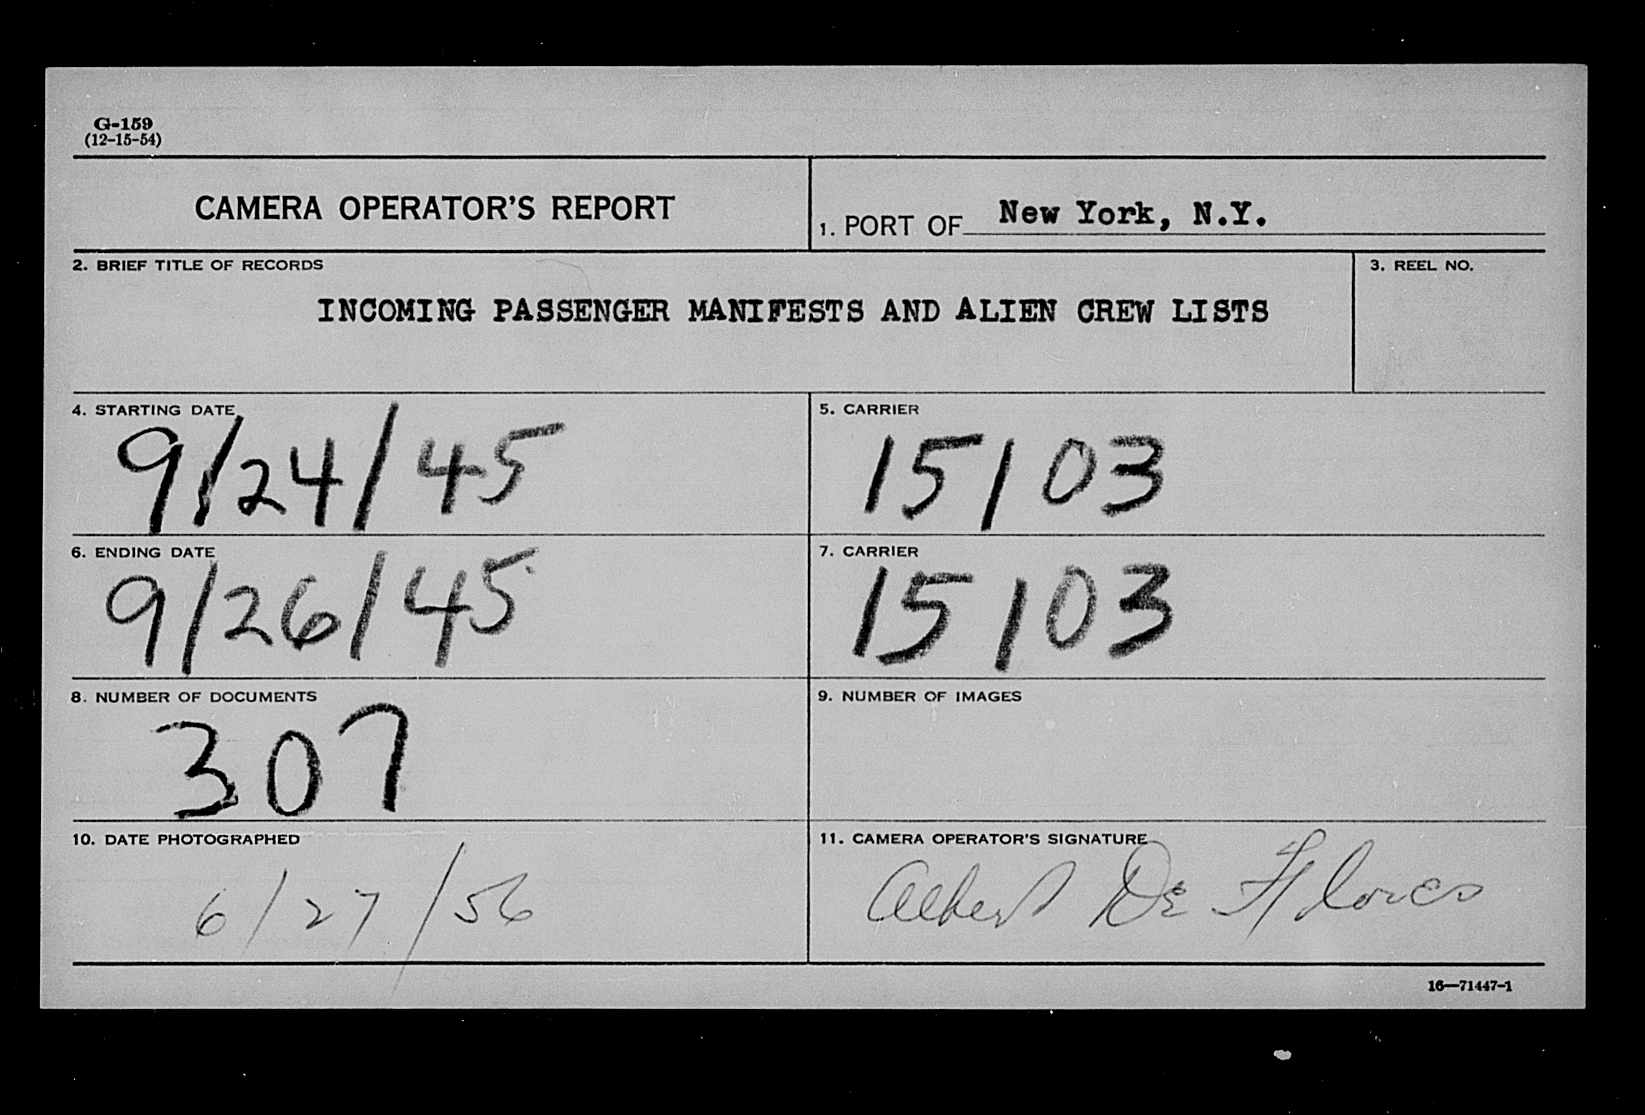 G-159
(12-15-54)
CAMERA OPERATOR'S REPORT
1. PORT OF New York, N.Y.
2. BRIEF TITLE OF RECORDS
3. REEL NO.
INCOMING PASSENGER MANIFESTS AND ALIEN CREW LISTS
4. STARTING DATE
9/24/45
5. CARRIER
15103
6. ENDING DATE
9/26/45
7. CARRIER
15103
8. NUMBER OF DOCUMENTS
307
9. NUMBER OF IMAGES
10. DATE PHOTOGRAPHED
6/27/56
11. CAMERA OPERATOR'S SIGNATURE
Albert De Flores
16—71447-1